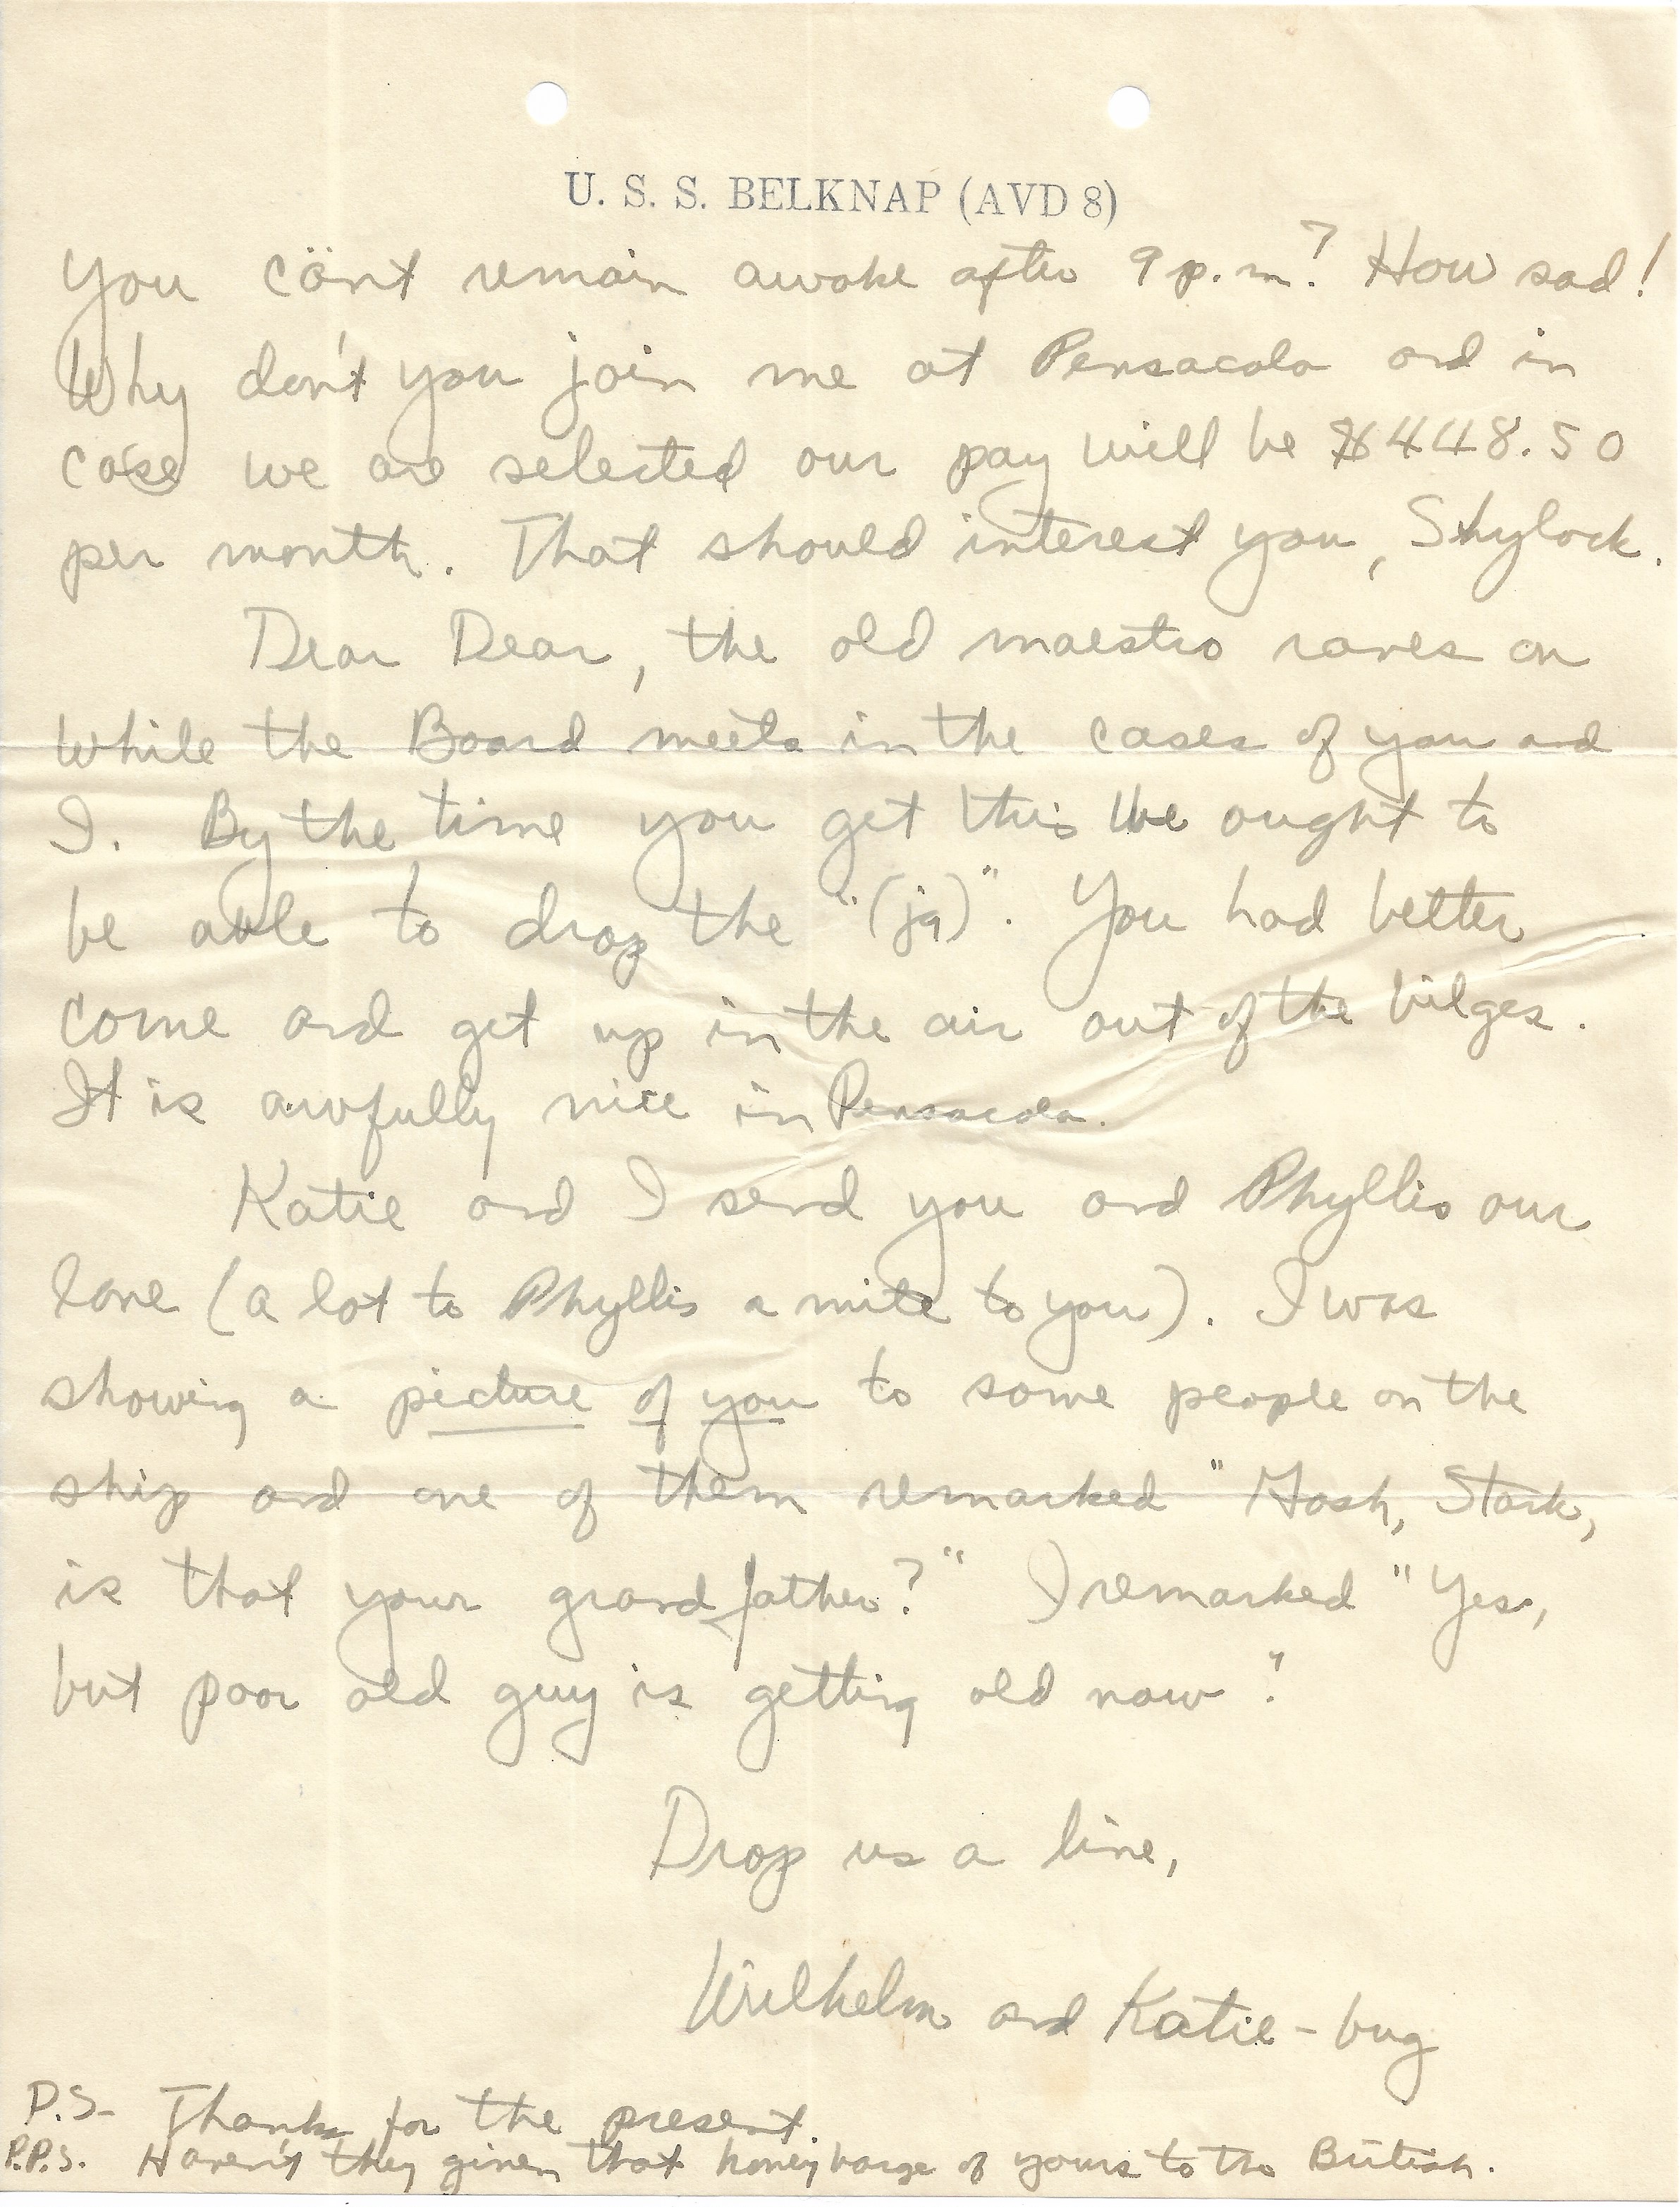 U. S. S. BELKNAP (AVD 8)
You cän't remain awake after 9 p.m.? How sad!
Why don't you join me at Pensacola and in
case we are selected our pay will be $448.50
per month. That should interest you, Shylock.
Dear Dear, the old maestro raves on
while the Board meets in the cases of you and
I. By the time you get this we ought to
be able to drop the "(jg)". You had better
come and get up in the air out of the bilges.
It is awfully nice in Pensacola.
Katie and I send you and Phyllis our
love (a lot to Phyllis a mite to you). I was
showing a picture of you to some people on the
ship and one of them remarked "Gosh, Stark,
is that your grandfather?" I remarked "Yes,
but poor old guy is getting old now".
Drop us a line,
Wilhelm and Katie-bug
P.S- Thanks for the present.
P.P.S. Haven't they given that honey barge of yours to the British.